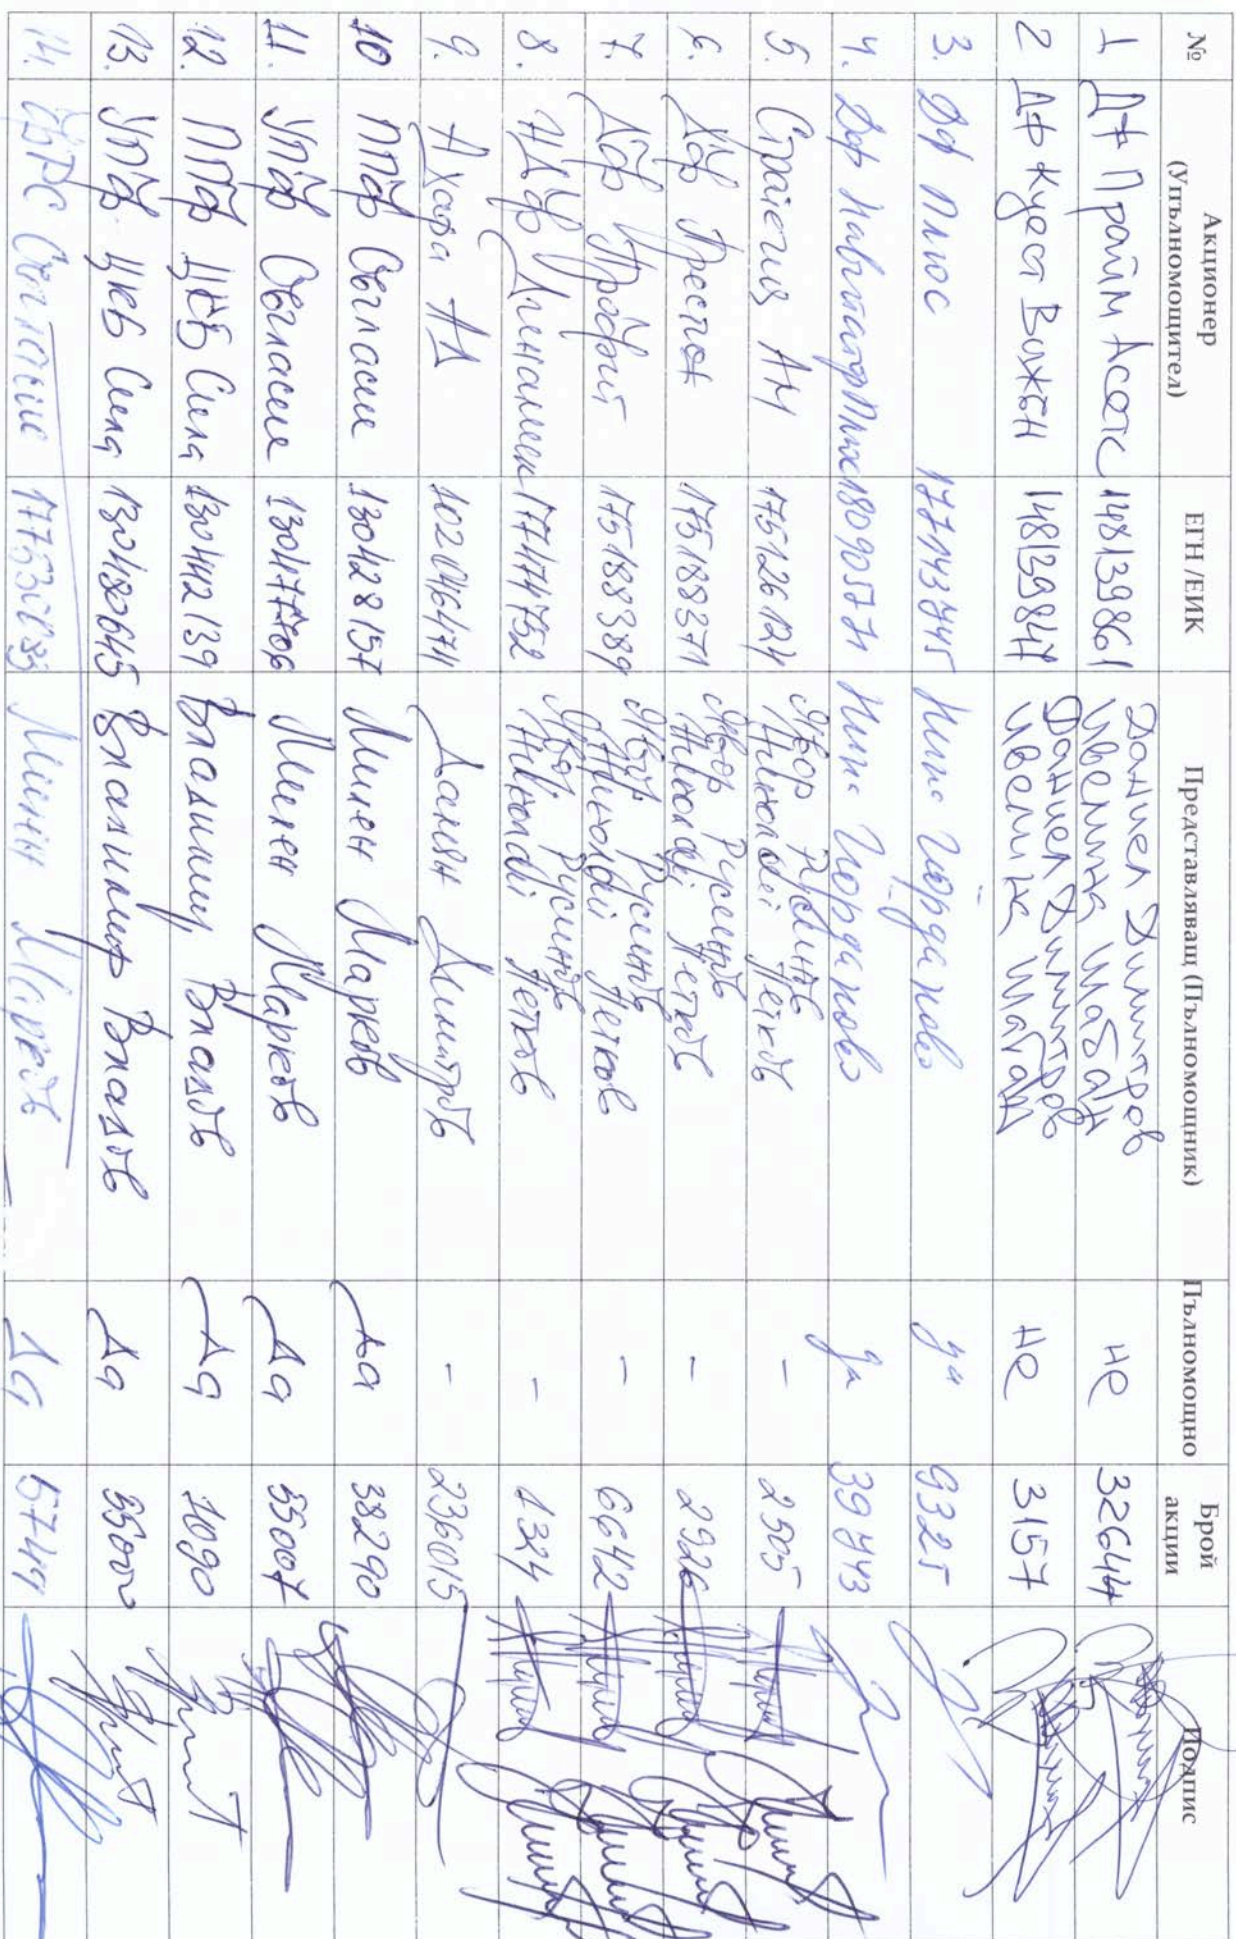 № Акционер (Упълномощител) ЕГН /ЕИК Представляващ (Пълномощник) Пълномощно Брой акции Подпис
1 ДФ Прайм Асетс 148139861 Даниел Димитров Ивелина Шабан не 32644
2 ДФ Куест Вижън 148139847 Даниел Димитров Ивелина Шабан не 3157
3. Дф Плюс 177143445 Йордано​ва да 9325
4. Дф Навигатор Плюс 180905571 Йорданова да 39443
5. Стратегия АМ 175126124 Явор Русинов Николай Петков - 2505
6. Дф Престо 175188371 Явор Русинов Николай Петков - 2926
7. Дф Профит 175188389 Явор Русинов Николай Петков - 6642
8. НДф Динамик 177474752 Явор Русинов Николай Петков - 1324
9. А Хафа АД 102046474 Дамян Димитров - 236015
10 ППФ Съгласие 130428157 Милен Марков Да 38290
11. УПФ Съгласие 130477706 Милен Марков Да 55007
12. ППФ ЦКБ Сила 130442139 Владимир Владов Да 7090
13. УПФ ЦКБ Сила 130480645 Владимир Владов Да 55000
14. Съгласие Милен Марков Да 5749